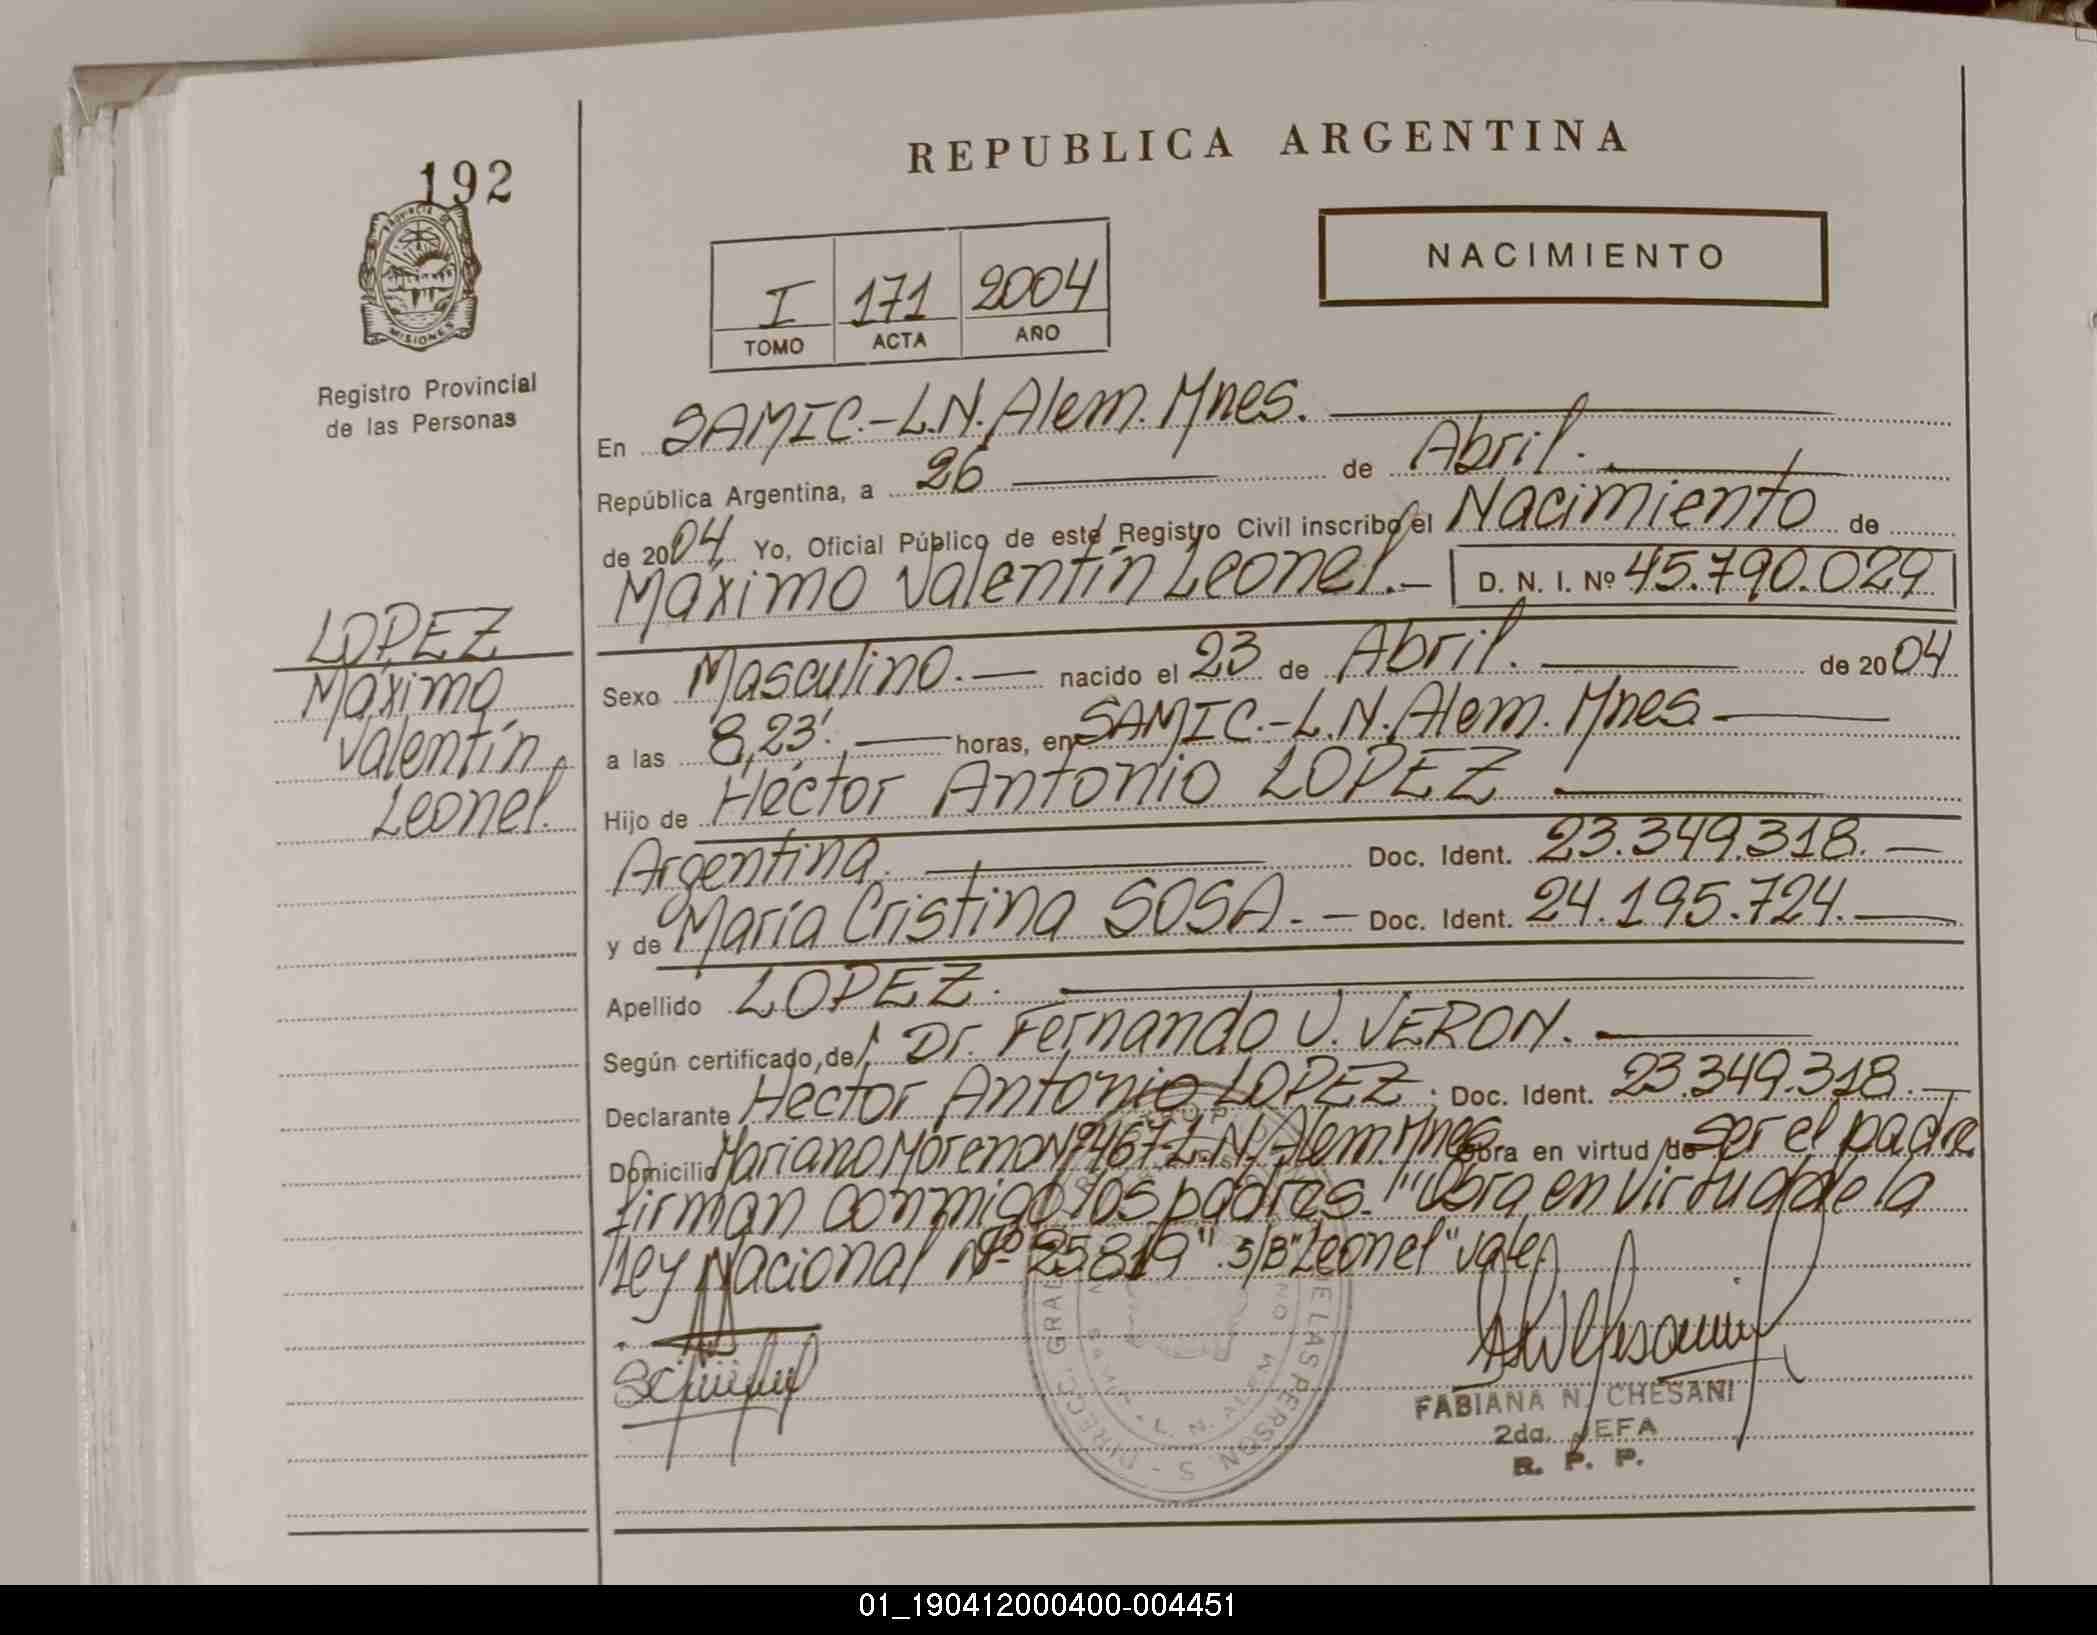 192
PROVINCIA DE
MISIONES
Registro Provincial
de las Personas
LOPEZ
Máximo
Valentín
Leonel.
REPUBLICA ARGENTINA
NACIMIENTO
I 171 2004
TOMO ACTA AÑO
En SAMIC.-L.N. Alem. Mnes.
República Argentina, a 26 de Abril.
de 2004. Yo, Oficial Público de este Registro Civil inscribo el Nacimiento de
Máximo Valentín Leonel.- D. N. I. Nº 45.790.029
Sexo Masculino.- nacido el 23 de Abril. de 2004
a las 8,23'. horas, en SAMIC.-L.N. Alem. Mnes.
Hijo de Héctor Antonio LOPEZ
Argentina. Doc. Ident. 23.349.318.-
y de María Cristina SOSA.- Doc. Ident. 24.195.724.
Apellido LOPEZ.
Según certificado, de Dr. Fernando U. VERON.
Declarante Héctor Antonio LOPEZ; Doc. Ident. 23.349.318.-
Domicilio Mariano Moreno Nº467-L.N. Alem. Mnes obra en virtud de ser el padre
firman conmigo los padres. "Obra en virtud de la
Ley Nacional Nº 25819". s/B "Leonel" vale
FABIANA N. CHESANI
2da. JEFA
R. P. P.
01_190412000400-004451